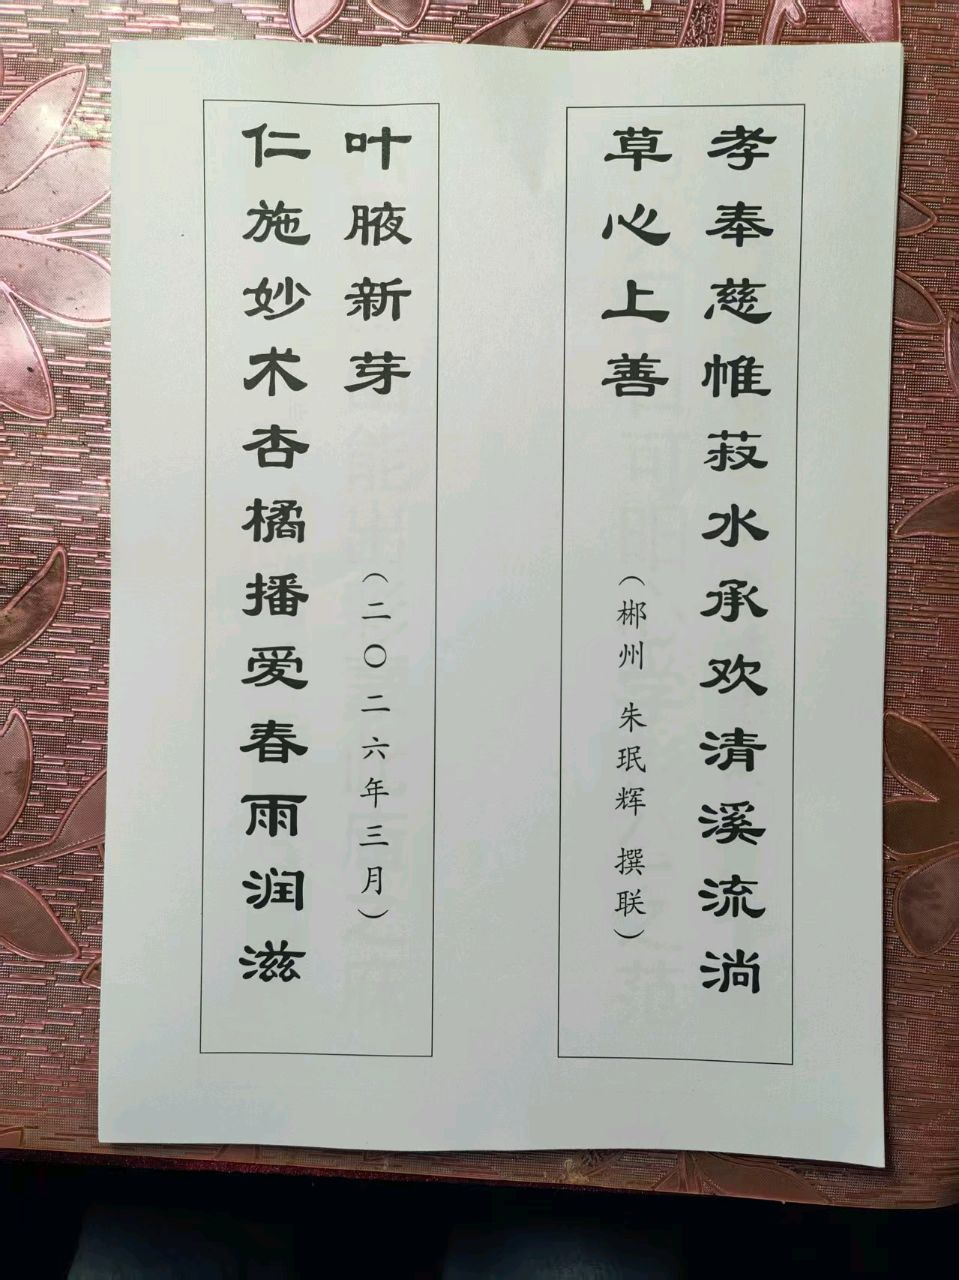 孝奉慈帷菽水承欢清溪流淌
草心上善
（郴州 朱珉辉 撰联）
叶腋新芽
（二〇二六年三月）
仁施妙术杏橘播爱春雨润滋